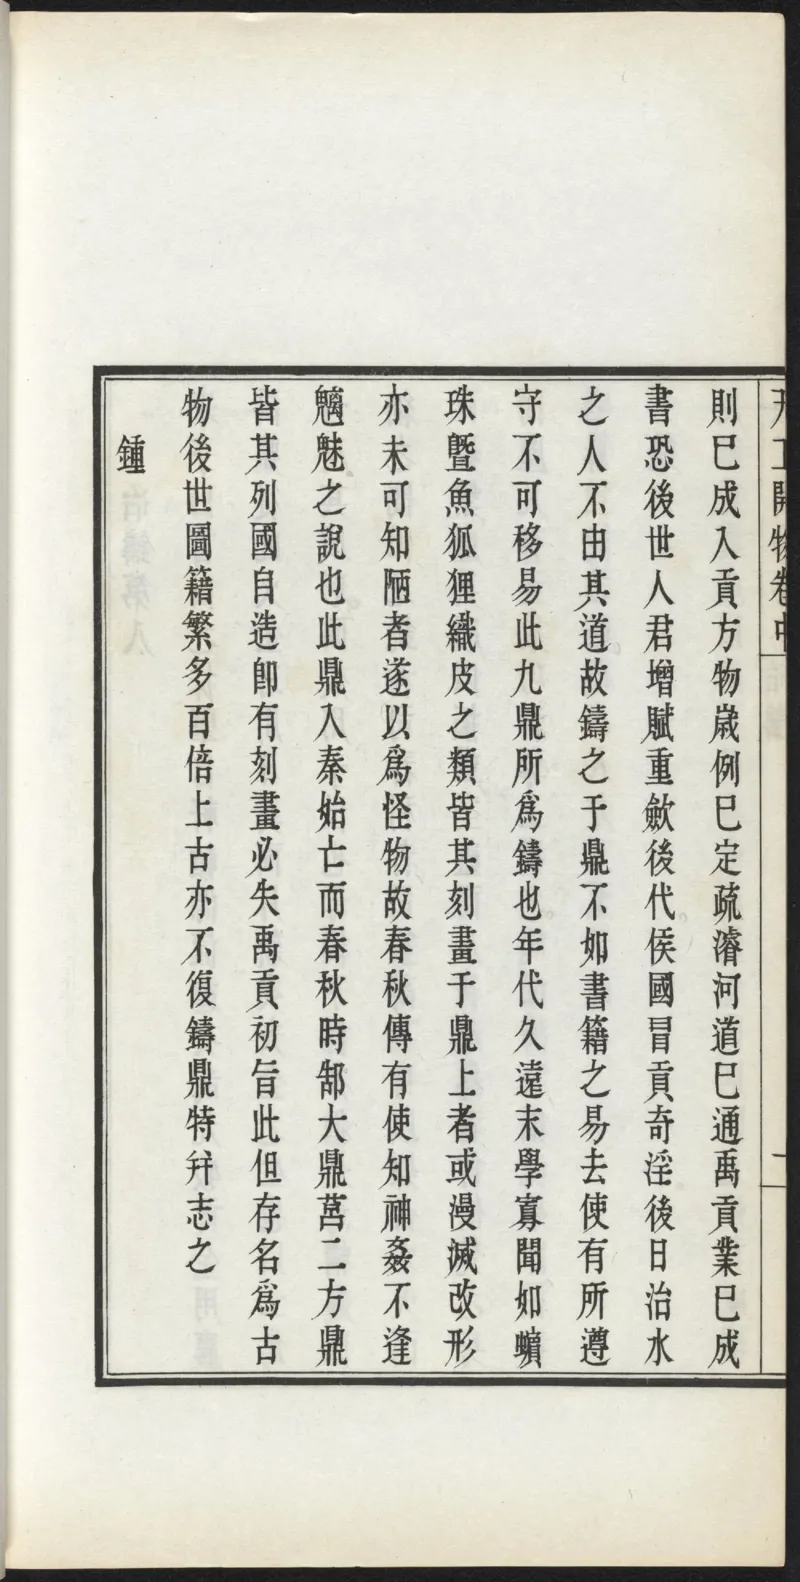 天工開物卷中
二
則巳成入貢方物歲例巳定疏濬河道巳通禹貢業巳成
書恐後世人君增賦重斂後代侯國冒貢奇淫後日治水
之人不由其道故鑄之于鼎不如書籍之易去使有所遵
守不可移易此九鼎所爲鑄也年代久遠末學寡聞如蠙
珠暨魚狐狸織皮之類皆其刻畫于鼎上者或漫滅改形
亦未可知陋者遂以爲怪物故春秋傳有使知神姦不逢
魑魅之說也此鼎入秦始亡而春秋時郜大鼎莒二方鼎
皆其列國自造卽有刻畫必失禹貢初旨此但存名爲古
物後世圖籍繁多百倍上古亦不復鑄鼎特幷志之
鍾